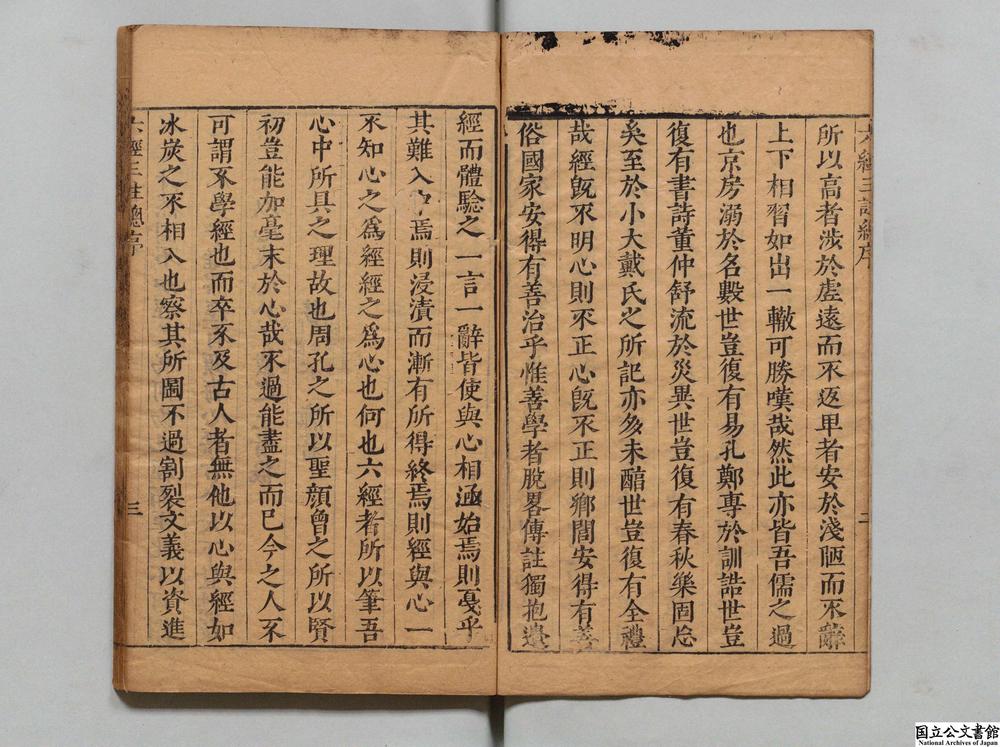 六經三註總序
二
所以高者涉於虛遠而不返卑者安於淺陋而不辭
上下相習如出一轍可勝嘆哉然此亦皆吾儒之過
也京房溺於名數世豈復有易孔鄭專於訓誥世豈
復有書詩董仲舒流於災異世豈復有春秋樂固忘
矣至於小大戴氏之所記亦多未醇世豈復有全禮
哉經旣不明心則不正心旣不正則鄉閭安得有善
俗國家安得有善治乎惟善學者脫畧傳註獨抱遺
經而體驗之一言一辭皆使與心相涵始焉則戞乎
其難入中焉則浸漬而漸有所得終焉則經與心一
不知心之爲經經之爲心也何也六經者所以筆吾
心中所具之理故也周孔之所以聖顏曾之所以賢
初豈能加毫末於心哉不過能盡之而已今之人不
可謂不學經也而卒不及古人者無他以心與經如
冰炭之不相入也察其所圖不過割裂文義以資進
六經三註總序
三
国立公文書館
National Archives of Japan